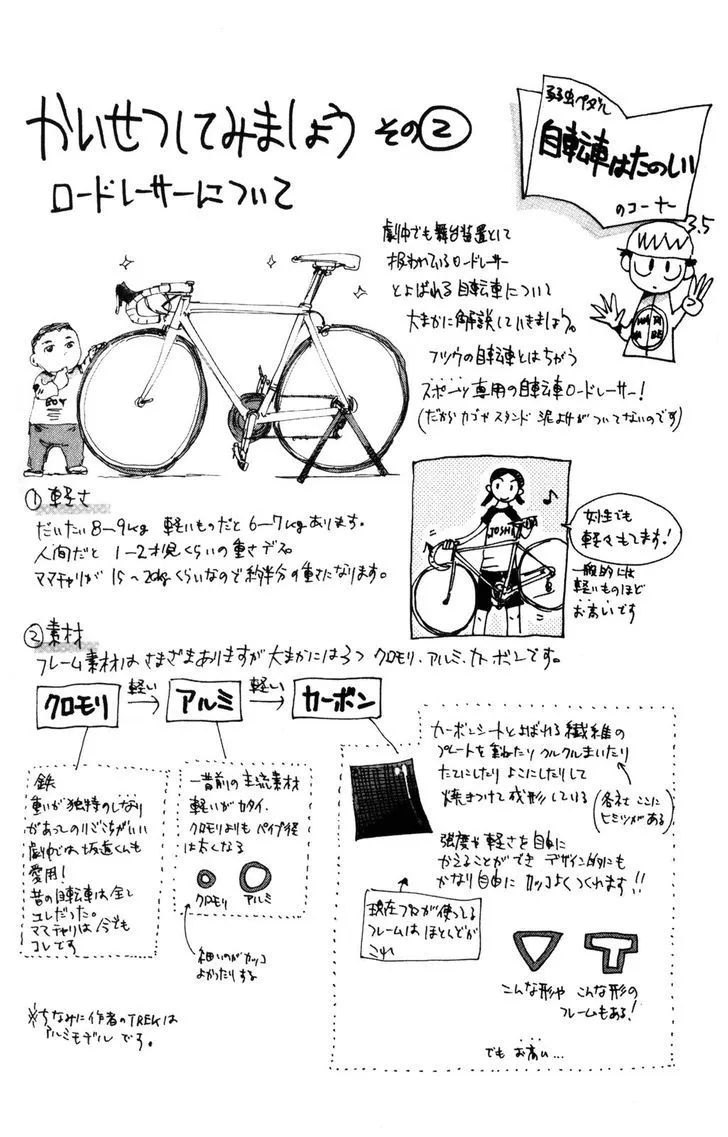 かいせつしてみましょう その②
ロードレーサーについて
弱虫ペダル
自転車はたのしい
のコーナー
3.5
劇中でも舞台装置として
扱われているロードレーサー
とよばれる自転車について
大まかに解説していきましょう。
フツウの自転車とはちがう
スポーツ専用の自転車ロードレーサー!
(だからカゴやスタンド 泥よけがついてないのです)
BOY
①軽さ
だいたい8〜9kg 軽いものだと6〜7kgあります。
人間だと 1〜2才児くらいの重さデス。
ママチャリが15〜20kgくらいなので約半分の重さになります。
JOSHI
女性でも
軽々もてます!
一般的には
軽いものほど
お高いです
②素材
フレーム素材はさまざまありますが大まかには3つ クロモリ、アルミ、カーボンです。
クロモリ 軽い→ アルミ 軽い→ カーボン
鉄
重いが独特のしなり
があってのりごこちがいい
劇中では坂道くんも
愛用!
昔の自転車は全て
コレだった。
ママチャリは今でも
コレです
一昔前の主流素材
軽いがカタイ.
クロモリよりもパイプ径
は太くなる
クロモリ アルミ
細いのがカッコ
よかったりする
カーボンシートとよばれる繊維の
プレートを重ねたりクルクルまいたり
たてにしたり よこにしたりして
焼きつけて成形している
(各社ここに
ヒミツがある)
強度や軽さを自由に
かえることができ デザイン的にも
かなり自由に カッコよくつくれます!!
現在プロが使ってる
フレームは ほとんどが
これ
こんな形や こんな形の
フレームもある!
でも お高い...
※ちなみに作者のTREKは
アルミモデルです。